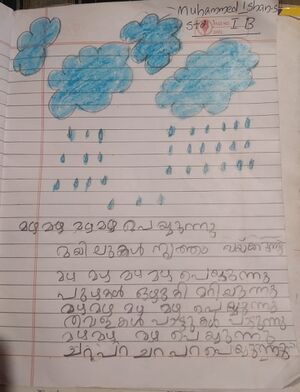 Muhammed Ishan
Std I B
മഴ മഴ മഴ മഴ പെയ്യുന്നു
മയിലുകൾ നൃത്തം വയ്ക്കുന്നു
മഴ മഴ മഴ മഴ പെയ്യുന്നു
പുഴകൾ ഒഴുകി മറിയുന്നു
മഴ മഴ മഴ മഴ പെയ്യുന്നു
തവളകൾ പാട്ടുകൾ പാടുന്നു
മഴ മഴ മഴ മഴ പെയ്യുന്നു
ചറപറ ചറ പറ പെയ്യുന്നു